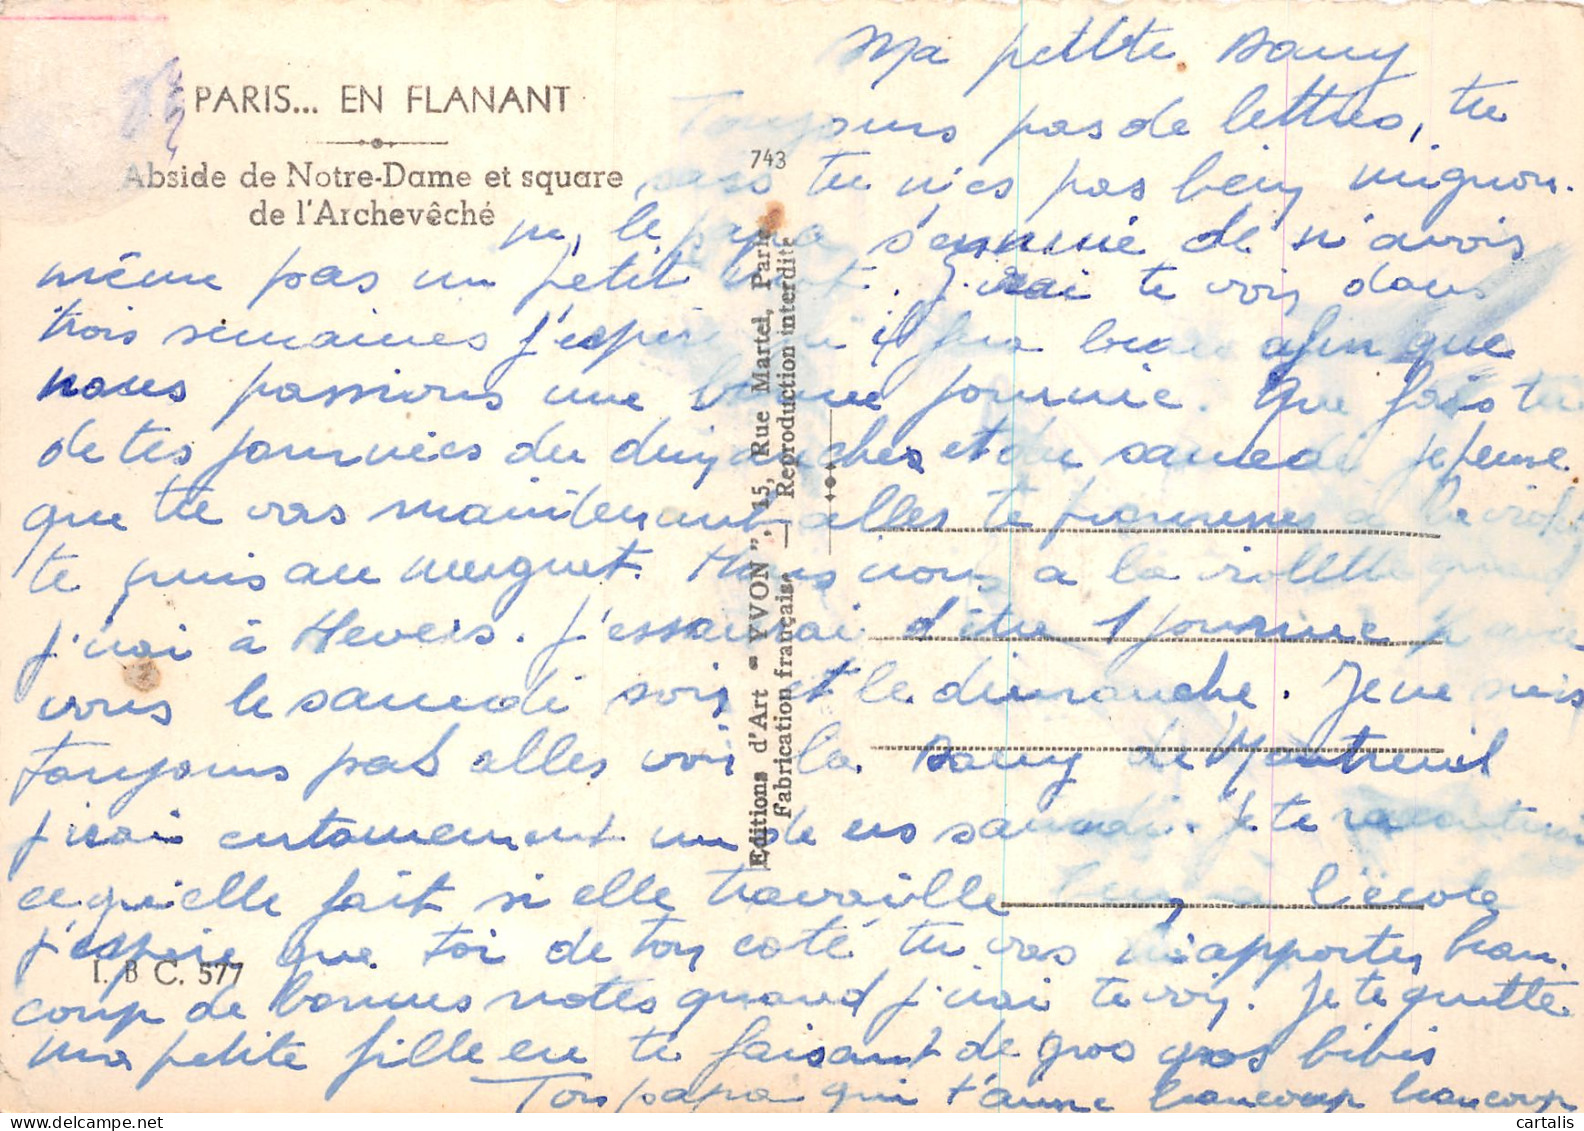 PARIS... EN FLANANT
Abside de Notre-Dame et square
de l'Archevêché
743
Editions d'Art "YVON", 15, Rue Martel, Paris
Fabrication française — Reproduction interdite
I. B C. 577
Ma petite Dany
Toujours pas de lettres, tu
sais tu n'es pas bien mignon.
ne, le papa s'ennuie de n'avois
même pas un petit mot. J'irai te vois dans
trois semaines j'espère il fera beau afin que
nous passions une bonne journnie. Que fais tu
de tes journnées du dimanches et du samedi je pense
que tu vas maintenant alles te promenes a la
te puis au muguet. Mais nous a la violette quand
j'irai à Heveis. J'essairai d'être 1 journnie
vous le samedi sois et le dimanche. Je ne suis
toujours pas alles vois la Dany de Montreuil
j'irai certainement un de ces samedi. Je te racontrai
ce qu'elle fait si elle travaille bien à l'école
j'espère que toi de ton coté tu vas m'apportes beau.
coup de bonnes notes quand j'irai te vois. Je te quitte
ma petite fille en te faisant de gros gros bibis
Ton papa qui t'aime beaucoup beaucoup
cartalis